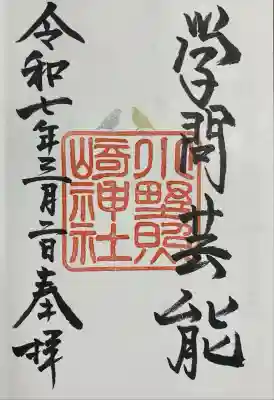 學問芸能
小野照
崎神社
令和七年三月二日奉拝